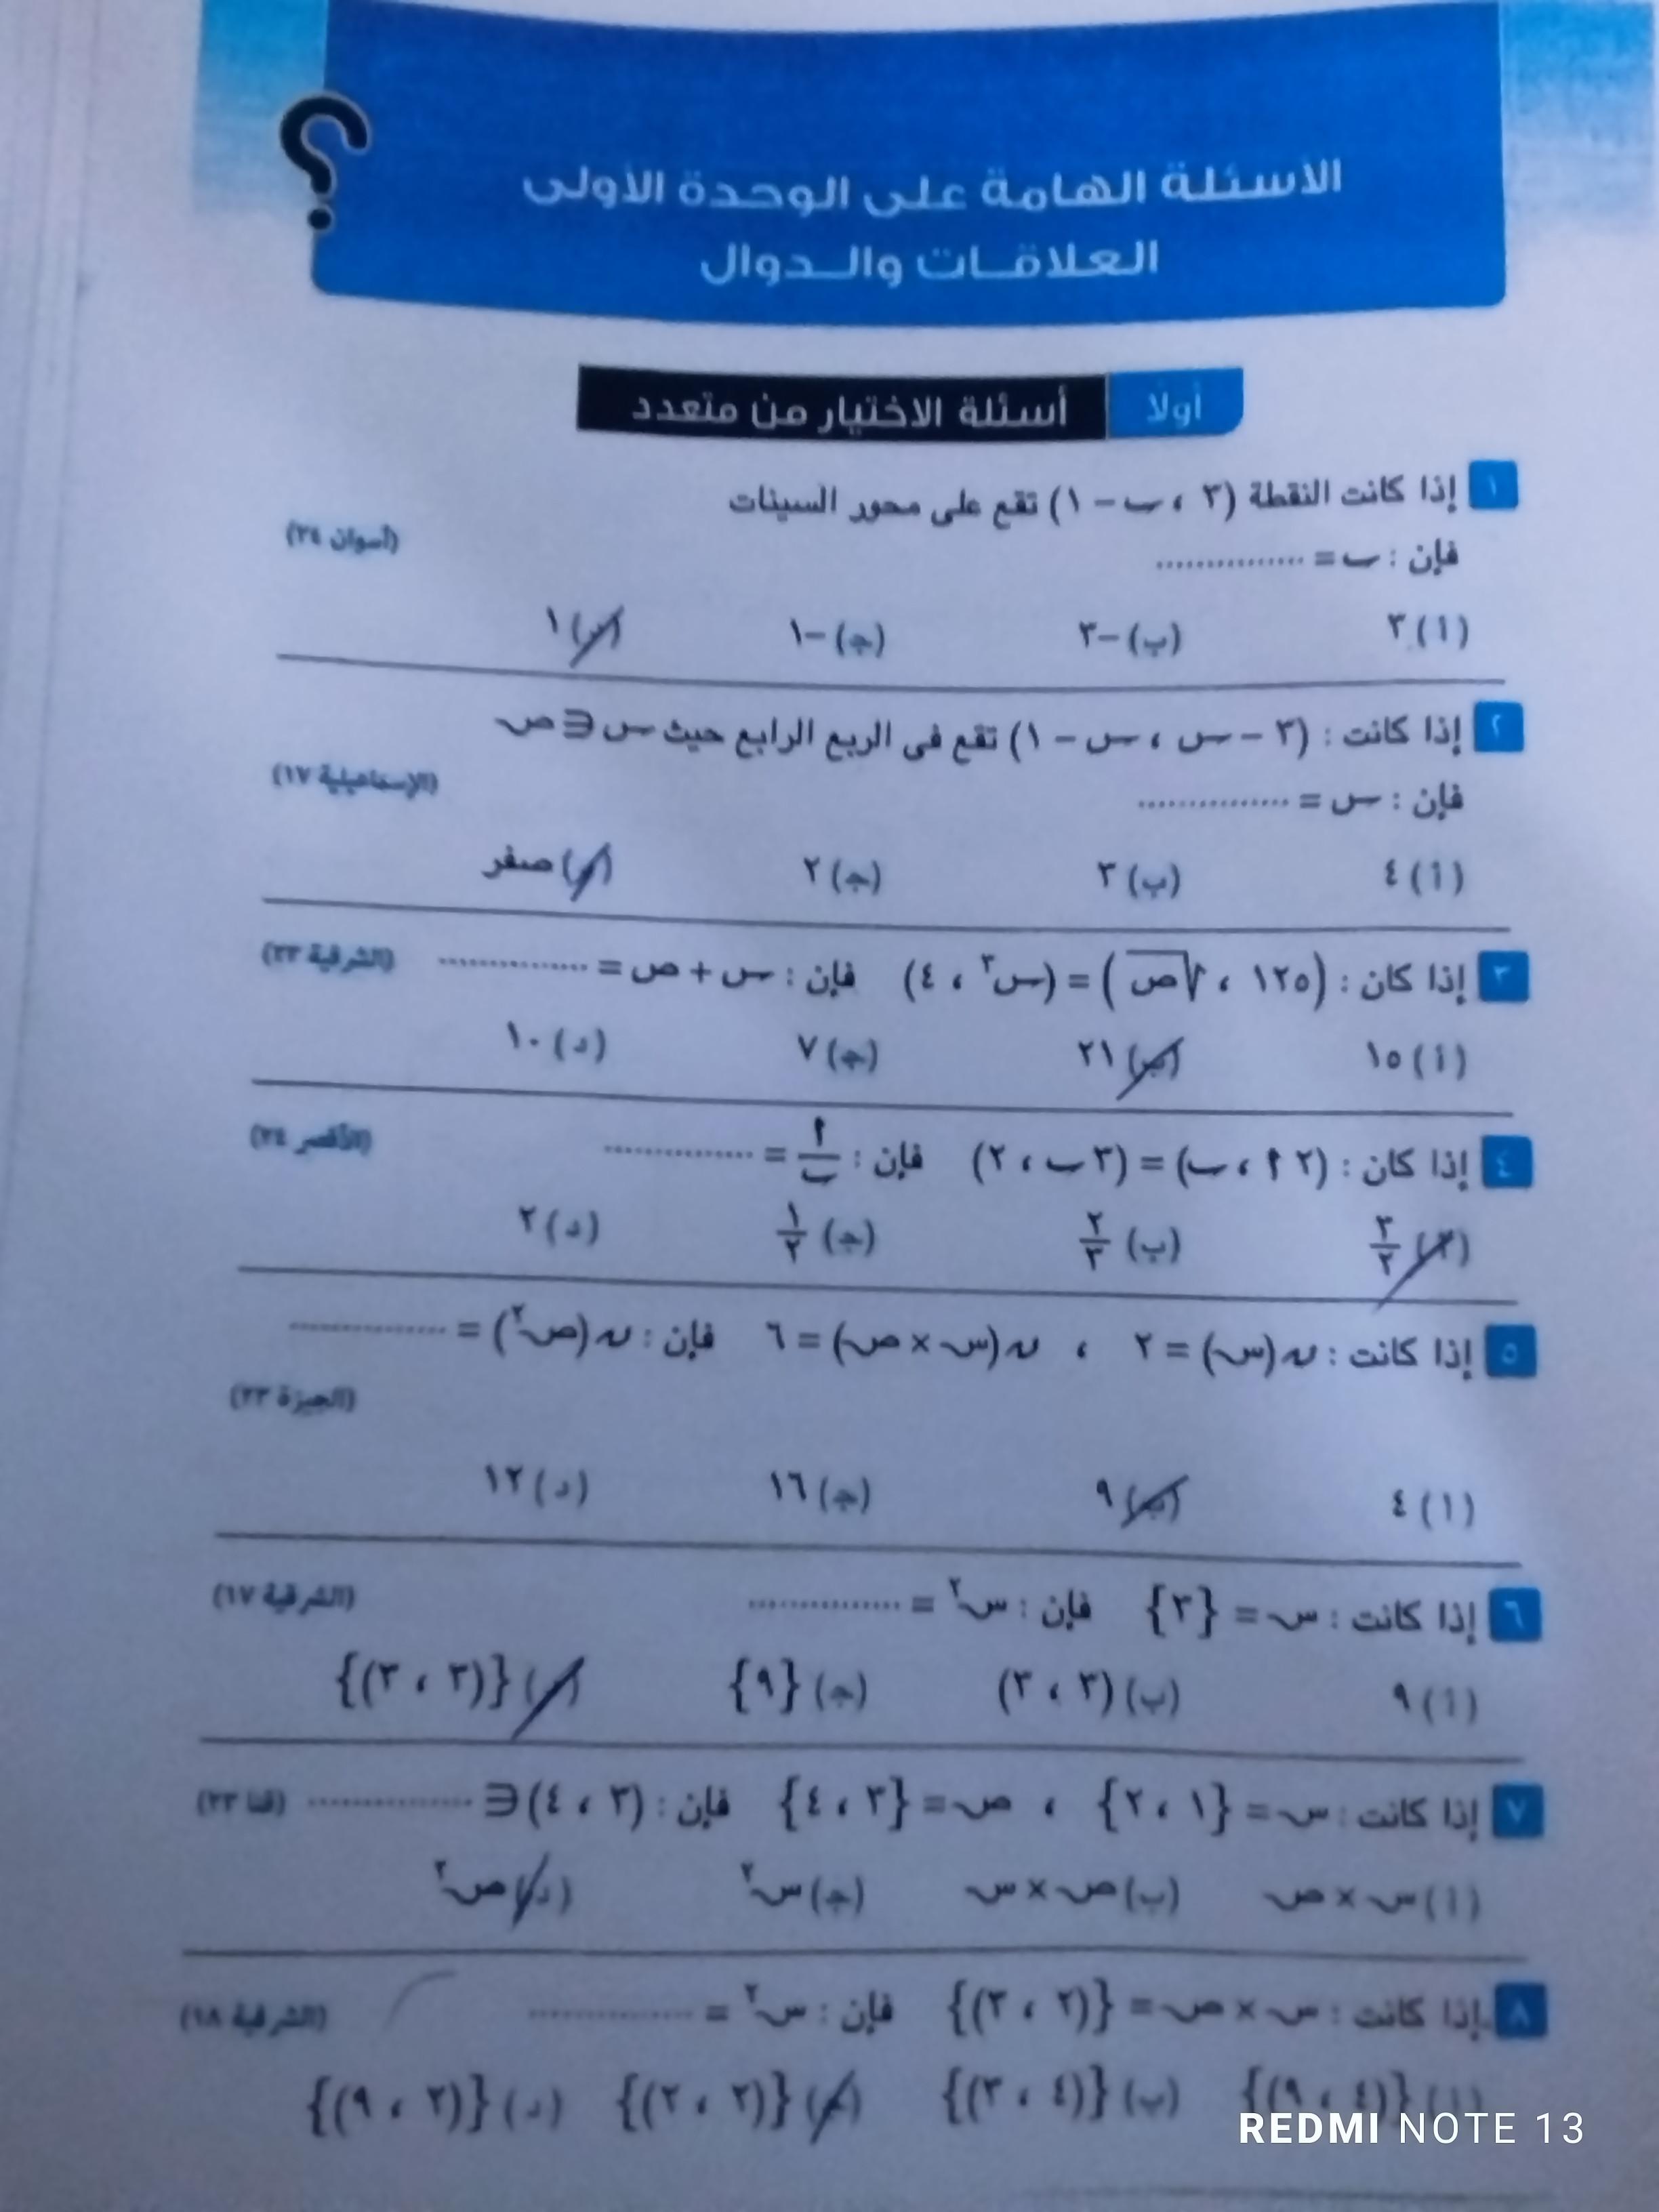 الأسئلة الهامة على الوحدة الأولى
العلاقات والدوال
أولا أسئلة الاختيار من متعدد
١ إذا كانت النقطة (٣ ، ب - ١) تقع على محور السينات
(أسوان ٢٤)
فإن : ب = ...............
(أ) ٣ (ب) -٣ (جـ) -١ (د) ١
٢ إذا كانت : (٣ - س ، س - ١) تقع فى الربع الرابع حيث س ∈ ص
(الإسماعيلية ١٧)
فإن : س = ...............
(أ) ٤ (ب) ٣ (جـ) ٢ (د) صفر
٣ إذا كان : (١٢٥ ، √ص) = (س٣ ، ٤) فإن : س + ص = ............... (الشرقية ٢٣)
(أ) ١٥ (ب) ٢١ (جـ) ٧ (د) ١٠
٤ إذا كان : (٢ أ ، ب) = (٣ ب ، ٢) فإن : أ/ب = ............... (الأقصر ٢٤)
(أ) ٣/٢ (ب) ٢/٣ (جـ) ١/٢ (د) ٢
٥ إذا كانت : ن(س) = ٢ ، ن(س × ص) = ٦ فإن : ن(ص٢) = ...............
(الجيزة ٢٣)
(أ) ٤ (ب) ٩ (جـ) ١٦ (د) ١٢
٦ إذا كانت : س = {٣} فإن : س٢ = ............... (الشرقية ١٧)
(أ) ٩ (ب) (٣ ، ٣) (جـ) {٩} (د) {(٣ ، ٣)}
٧ إذا كانت : س = {١ ، ٢} ، ص = {٣ ، ٤} فإن : (٣ ، ٤) ∈ ............... (قنا ٢٣)
(أ) س × ص (ب) ص × س (جـ) س٢ (د) ص٢
٨ إذا كانت : س × ص = {(٢ ، ٣)} فإن : س٢ = ............... (الشرقية ١٨)
(أ) {(٤ ، ٩)} (ب) {(٤ ، ٣)} (جـ) {(٢ ، ٢)} (د) {(٢ ، ٩)}
REDMI NOTE 13